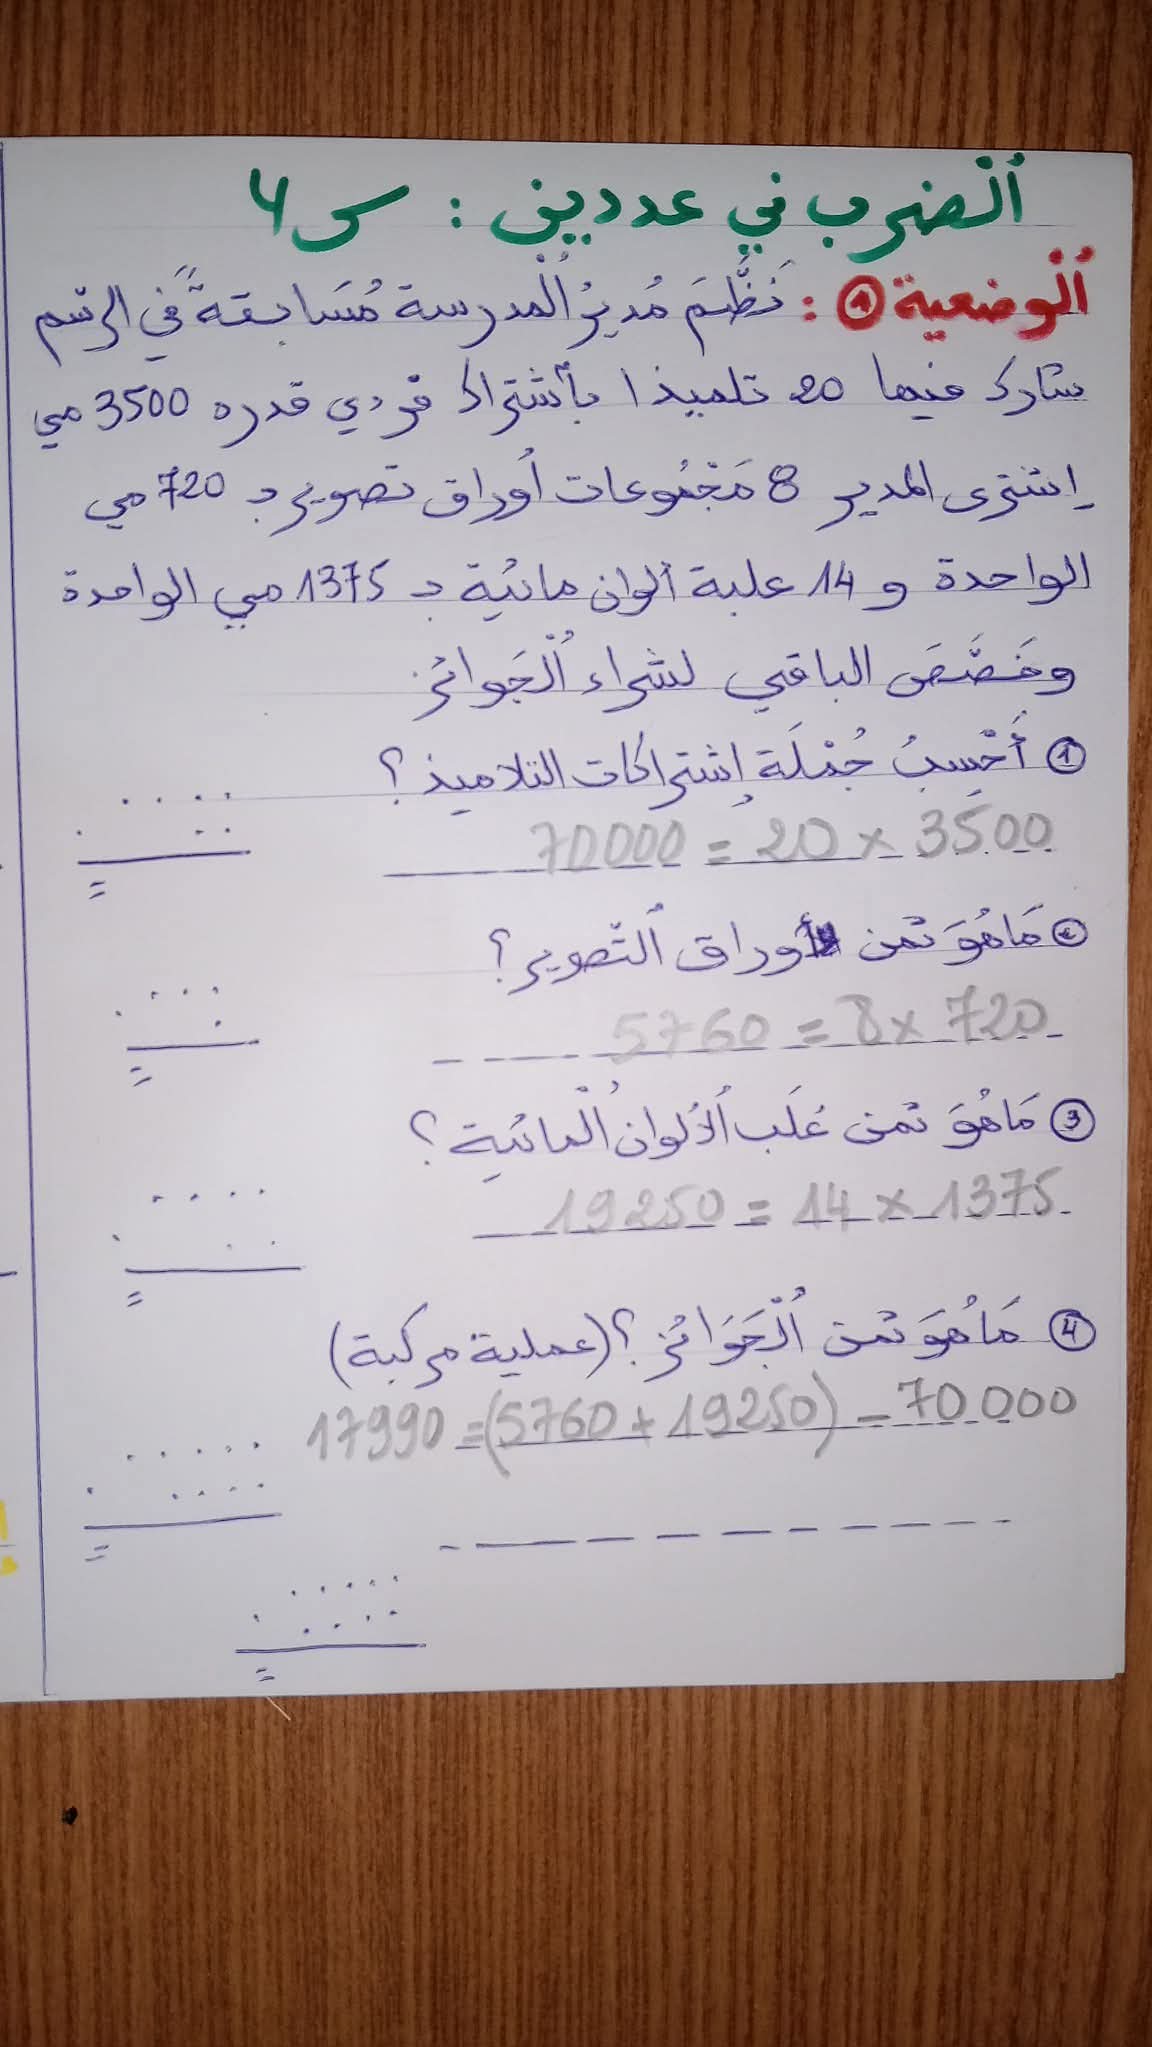 الضرب في عددين : س 4
الوضعية ① : نَظَّمَ مُديرُ الْمدرسة مُسَابقةً في الرّسم
شارك فيها 20 تلميذا بأشتراك فردي قدره 3500 مي
إشترى المدير 8 مَجْمُوعات أوراق تصوير بـ 720 مي
الواحدة و 14 علبة ألوان مائية بـ 1375 مي الواحدة
وخَصَّصَ الباقي لشراء الْجَوائز.
① أَحْسِبُ جُمْلَة إشتراكات التلاميذ؟
70000 = 20 × 3500
② مَا هُوَ ثمن أوراق التّصوير؟
5760 = 8 × 720
③ مَا هُوَ ثمن عُلَب الألوان الْمائيّة؟
19250 = 14 × 1375
④ مَا هُوَ ثمن الْجَوَائز؟ (عملية مركبة)
17990 = (5760 + 19250) - 70000